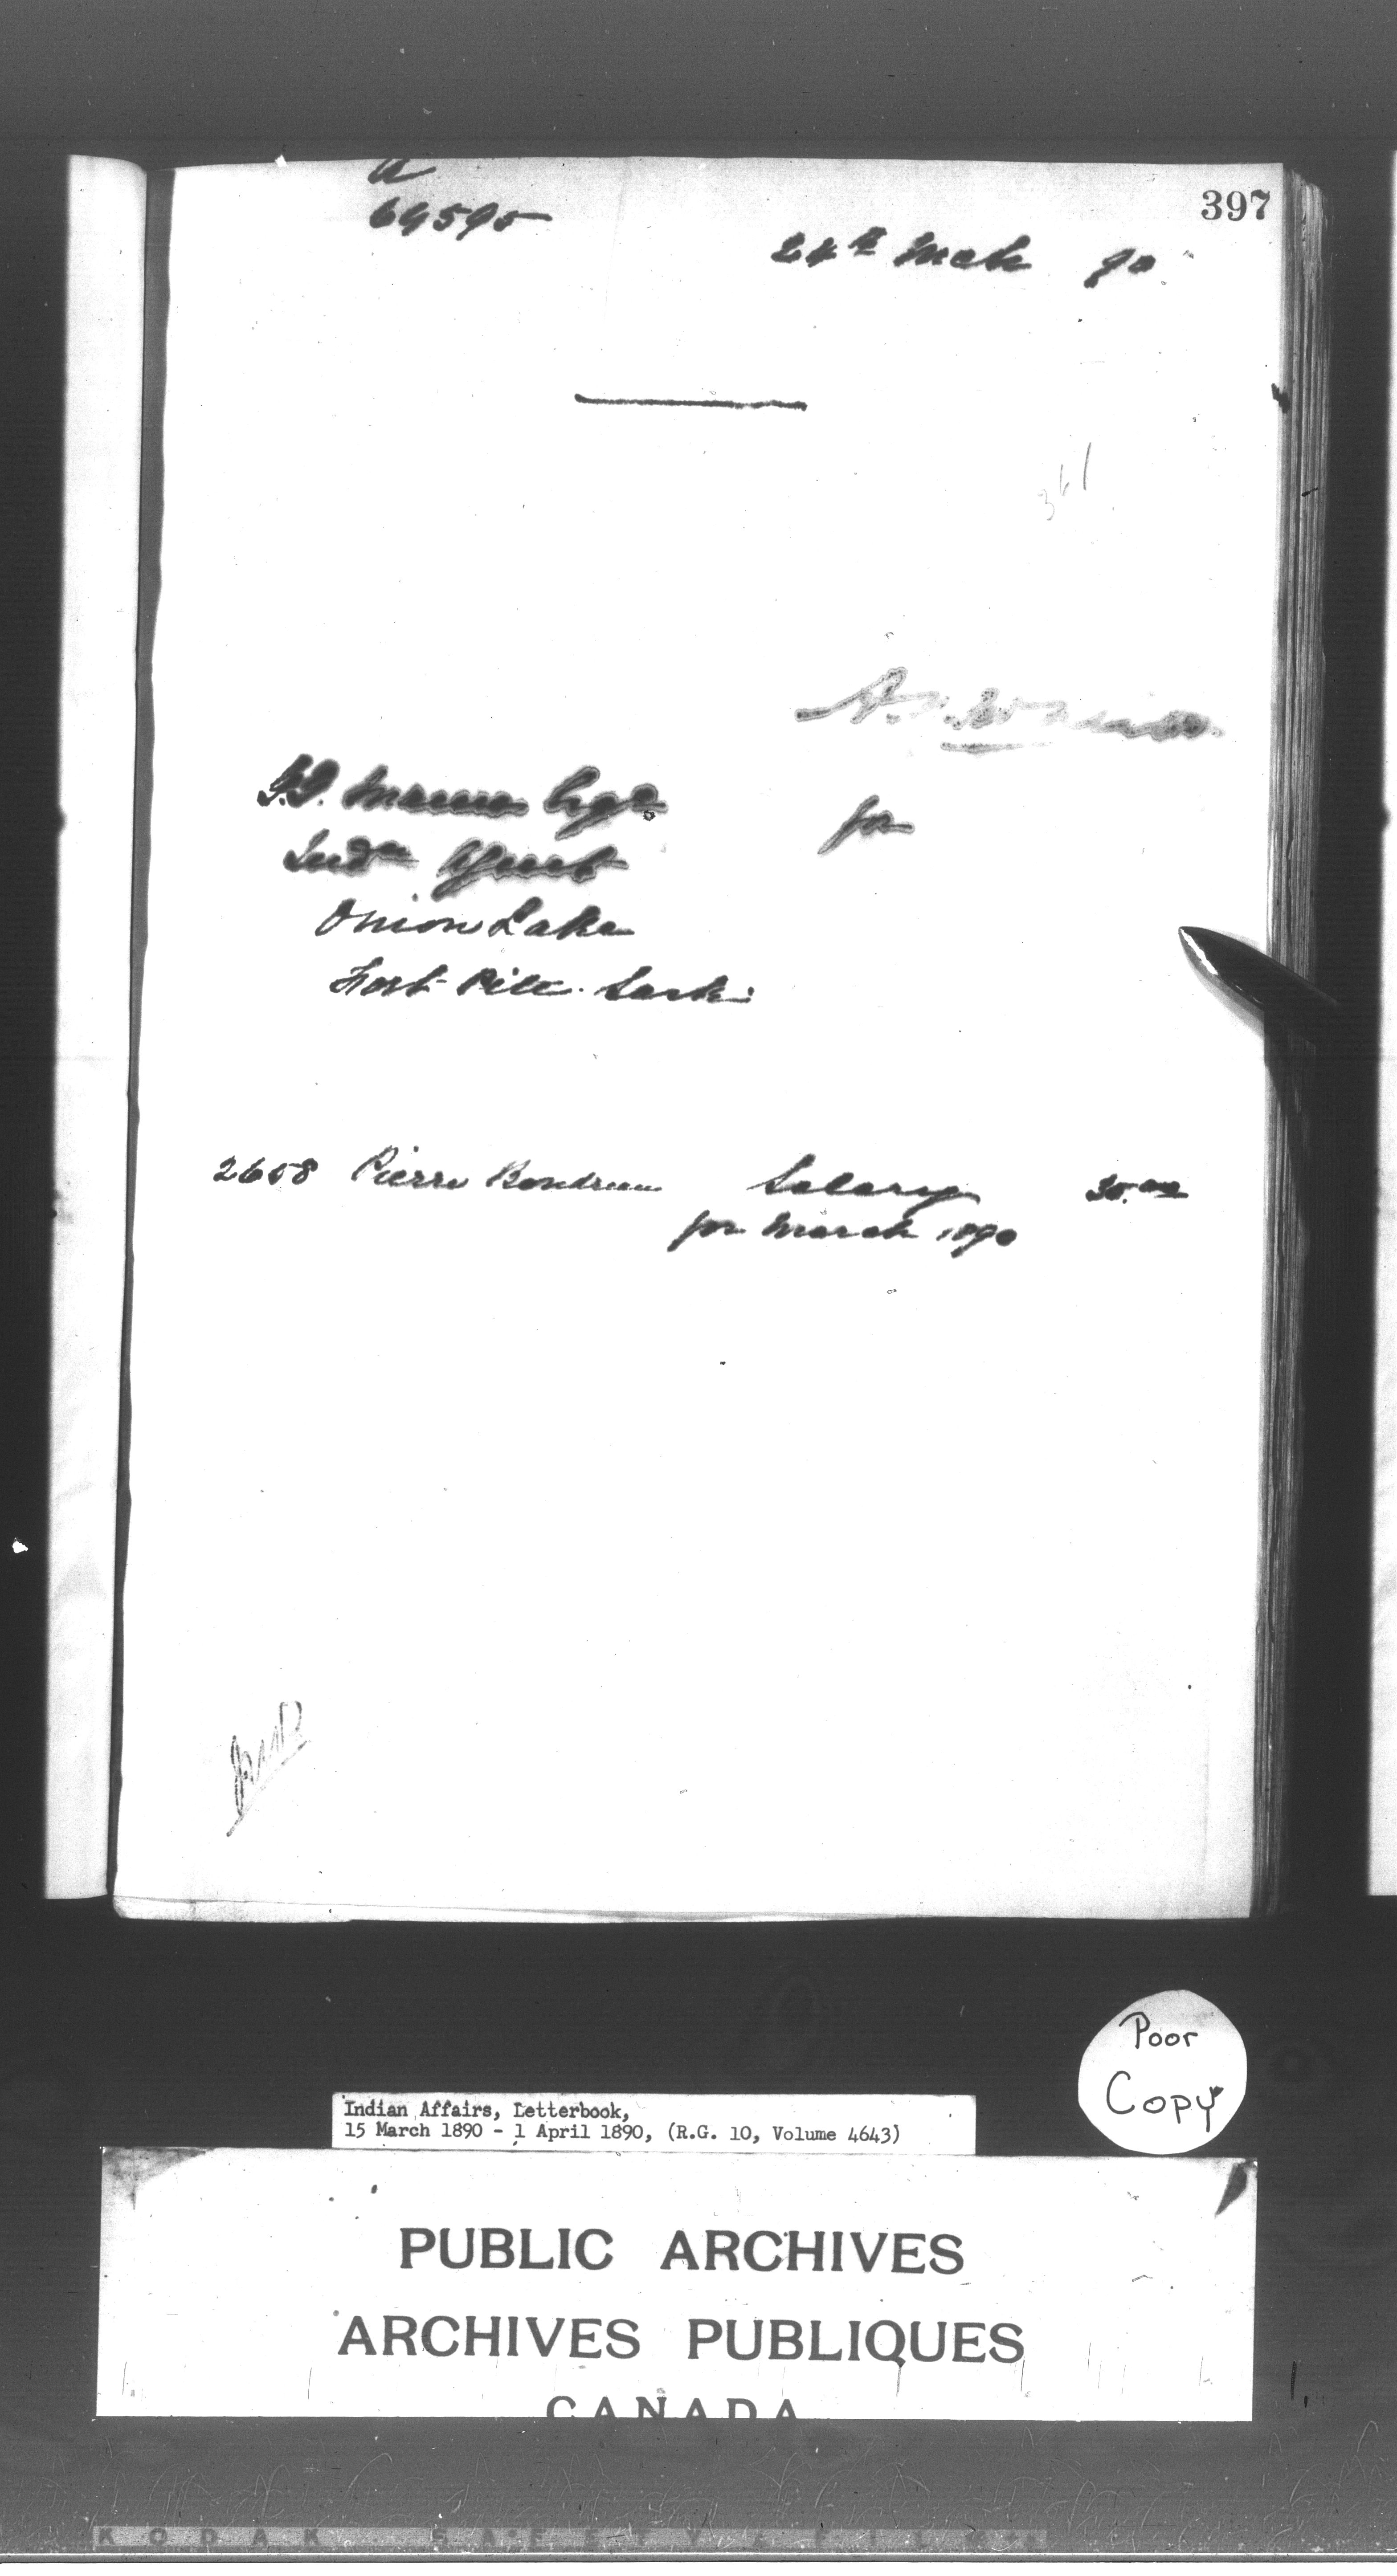 a
69595
397
24th Mch 90
361
G.G. Mann Esqr
for
Indn Agent
Onion Lake
Fort Pitt. Sask:
2658 Pierre Boudreau Salary 30.00
for March 1890
Poor
Copy
Indian Affairs, Letterbook,
15 March 1890 - 1 April 1890, (R.G. 10, Volume 4643)
PUBLIC ARCHIVES
ARCHIVES PUBLIQUES
CANADA
KODAK SAFETY FILM